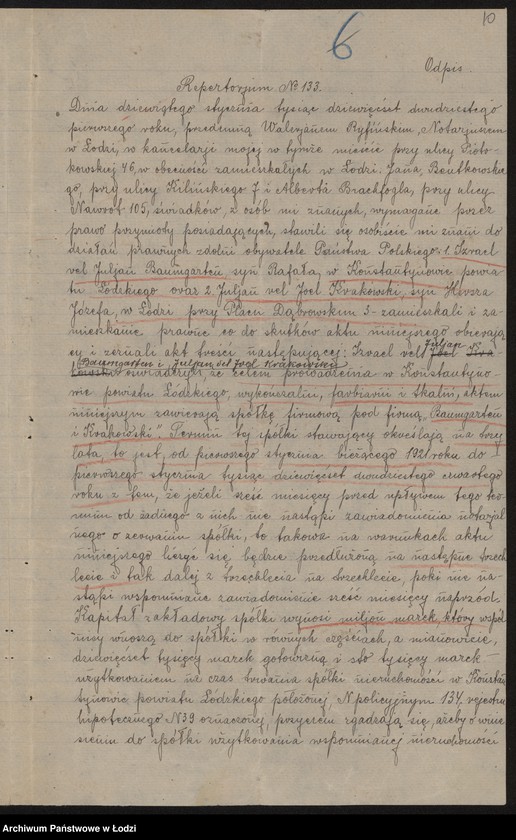 6
10
Odpis.
Repertorjum № 133.
Dnia dziewiątego stycznia tysiąc dziewięćset dwudziestego
pierwszego roku, przedemną Walerjanem Ryfińskim, Notarjuszem
w Łodzi, w kancelarji mojej w tymże mieście przy ulicy Piotr-
kowskiej 46, w obecności zamieszkałych w Łodzi: Jana Bentkowskie-
go, przy ulicy Kilińskiego 7 i Alberta Brachfogla, przy ulicy
Nawrot 105, świadków, z osób mi znanych, wymagane przez
prawo przymioty posiadających, stawili się osobiście mi znani do
działań prawnych zdolni obywatele Państwa Polskiego: 1. Izrael
vel Juljan Baumgarten, syn Rafała, w Konstantynowie powia-
tu Łódzkiego oraz 2. Juljan vel Joel Krakowski, syn Hersza
Józefa, w Łodzi przy Placu Dąbrowskim 3 - zamieszkali i za-
mieszkanie prawne co do skutków aktu niniejszego obierają-
cy i zeznali akt treści następującej: Izrael vel Juljan
Baumgarten i Juljan vel Joel Krakowski
oświadczyli że celem prowadzenia w Konstantyno-
wie powiatu Łódzkiego, wykończalni, farbiarni i tkalni, aktem
niniejszym zawierają spółkę firmową pod firmą "Baumgarten
i Krakowski". Termin tej spółki stawający określają na trzy
lata, to jest, od pierwszego stycznia bieżącego 1921 roku do
pierwszego stycznia tysiąc dziewięćset dwudziestego czwartego
roku z tem, że jeżeli sześć miesięcy przed upływem tego ter-
minu od żadnego z nich nie nastąpi zawiadomienia notarjal-
nego o zerwaniu spółki, to takowa na warunkach aktu
niniejszego liczyć się będzie przedłużoną na następne trzech-
lecie i tak dalej z trzechlecia na trzechlecie, póki nie na-
stąpi wspomniane zawiadomienie sześć miesięcy naprzód.
Kapitał zakładowy spółki wynosi miljon marek, który wspól-
nicy wnoszą do spółki w równych częściach, a mianowicie,
dziewięćset tysięcy marek gotowizną i sto tysięcy marek -
użytkowaniem na czas trwania spółki nieruchomości w Konstan-
tynowie powiatu Łódzkiego położonej, N policyjnym 134. rejestru
hipotecznego N 39 oznaczonej, przyczem zgadzają się, ażeby o wnie-
sieniu do spółki użytkowania wspomnianej nieruchomości
Archiwum Państwowe w Łodzi